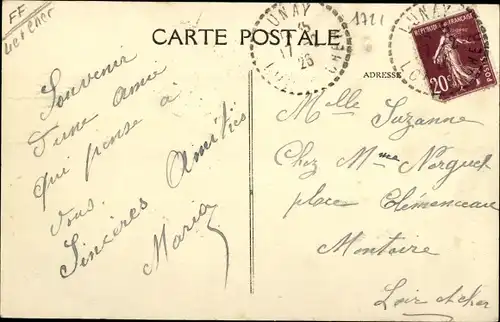 FF
Loir et Cher
CARTE POSTALE
ADRESSE
1721
LUNAY
17
26
LOIR
CHER
LUNAY
RÉPUBLIQUE FRANÇAISE
20c
POSTES
Souvenir
d'une amie
qui pense à
vous.
Sincères Amitiés
Maria
Mlle Suzanne
Chez Mme Norguet
place Clémenceau
Montoire
Loir et cher